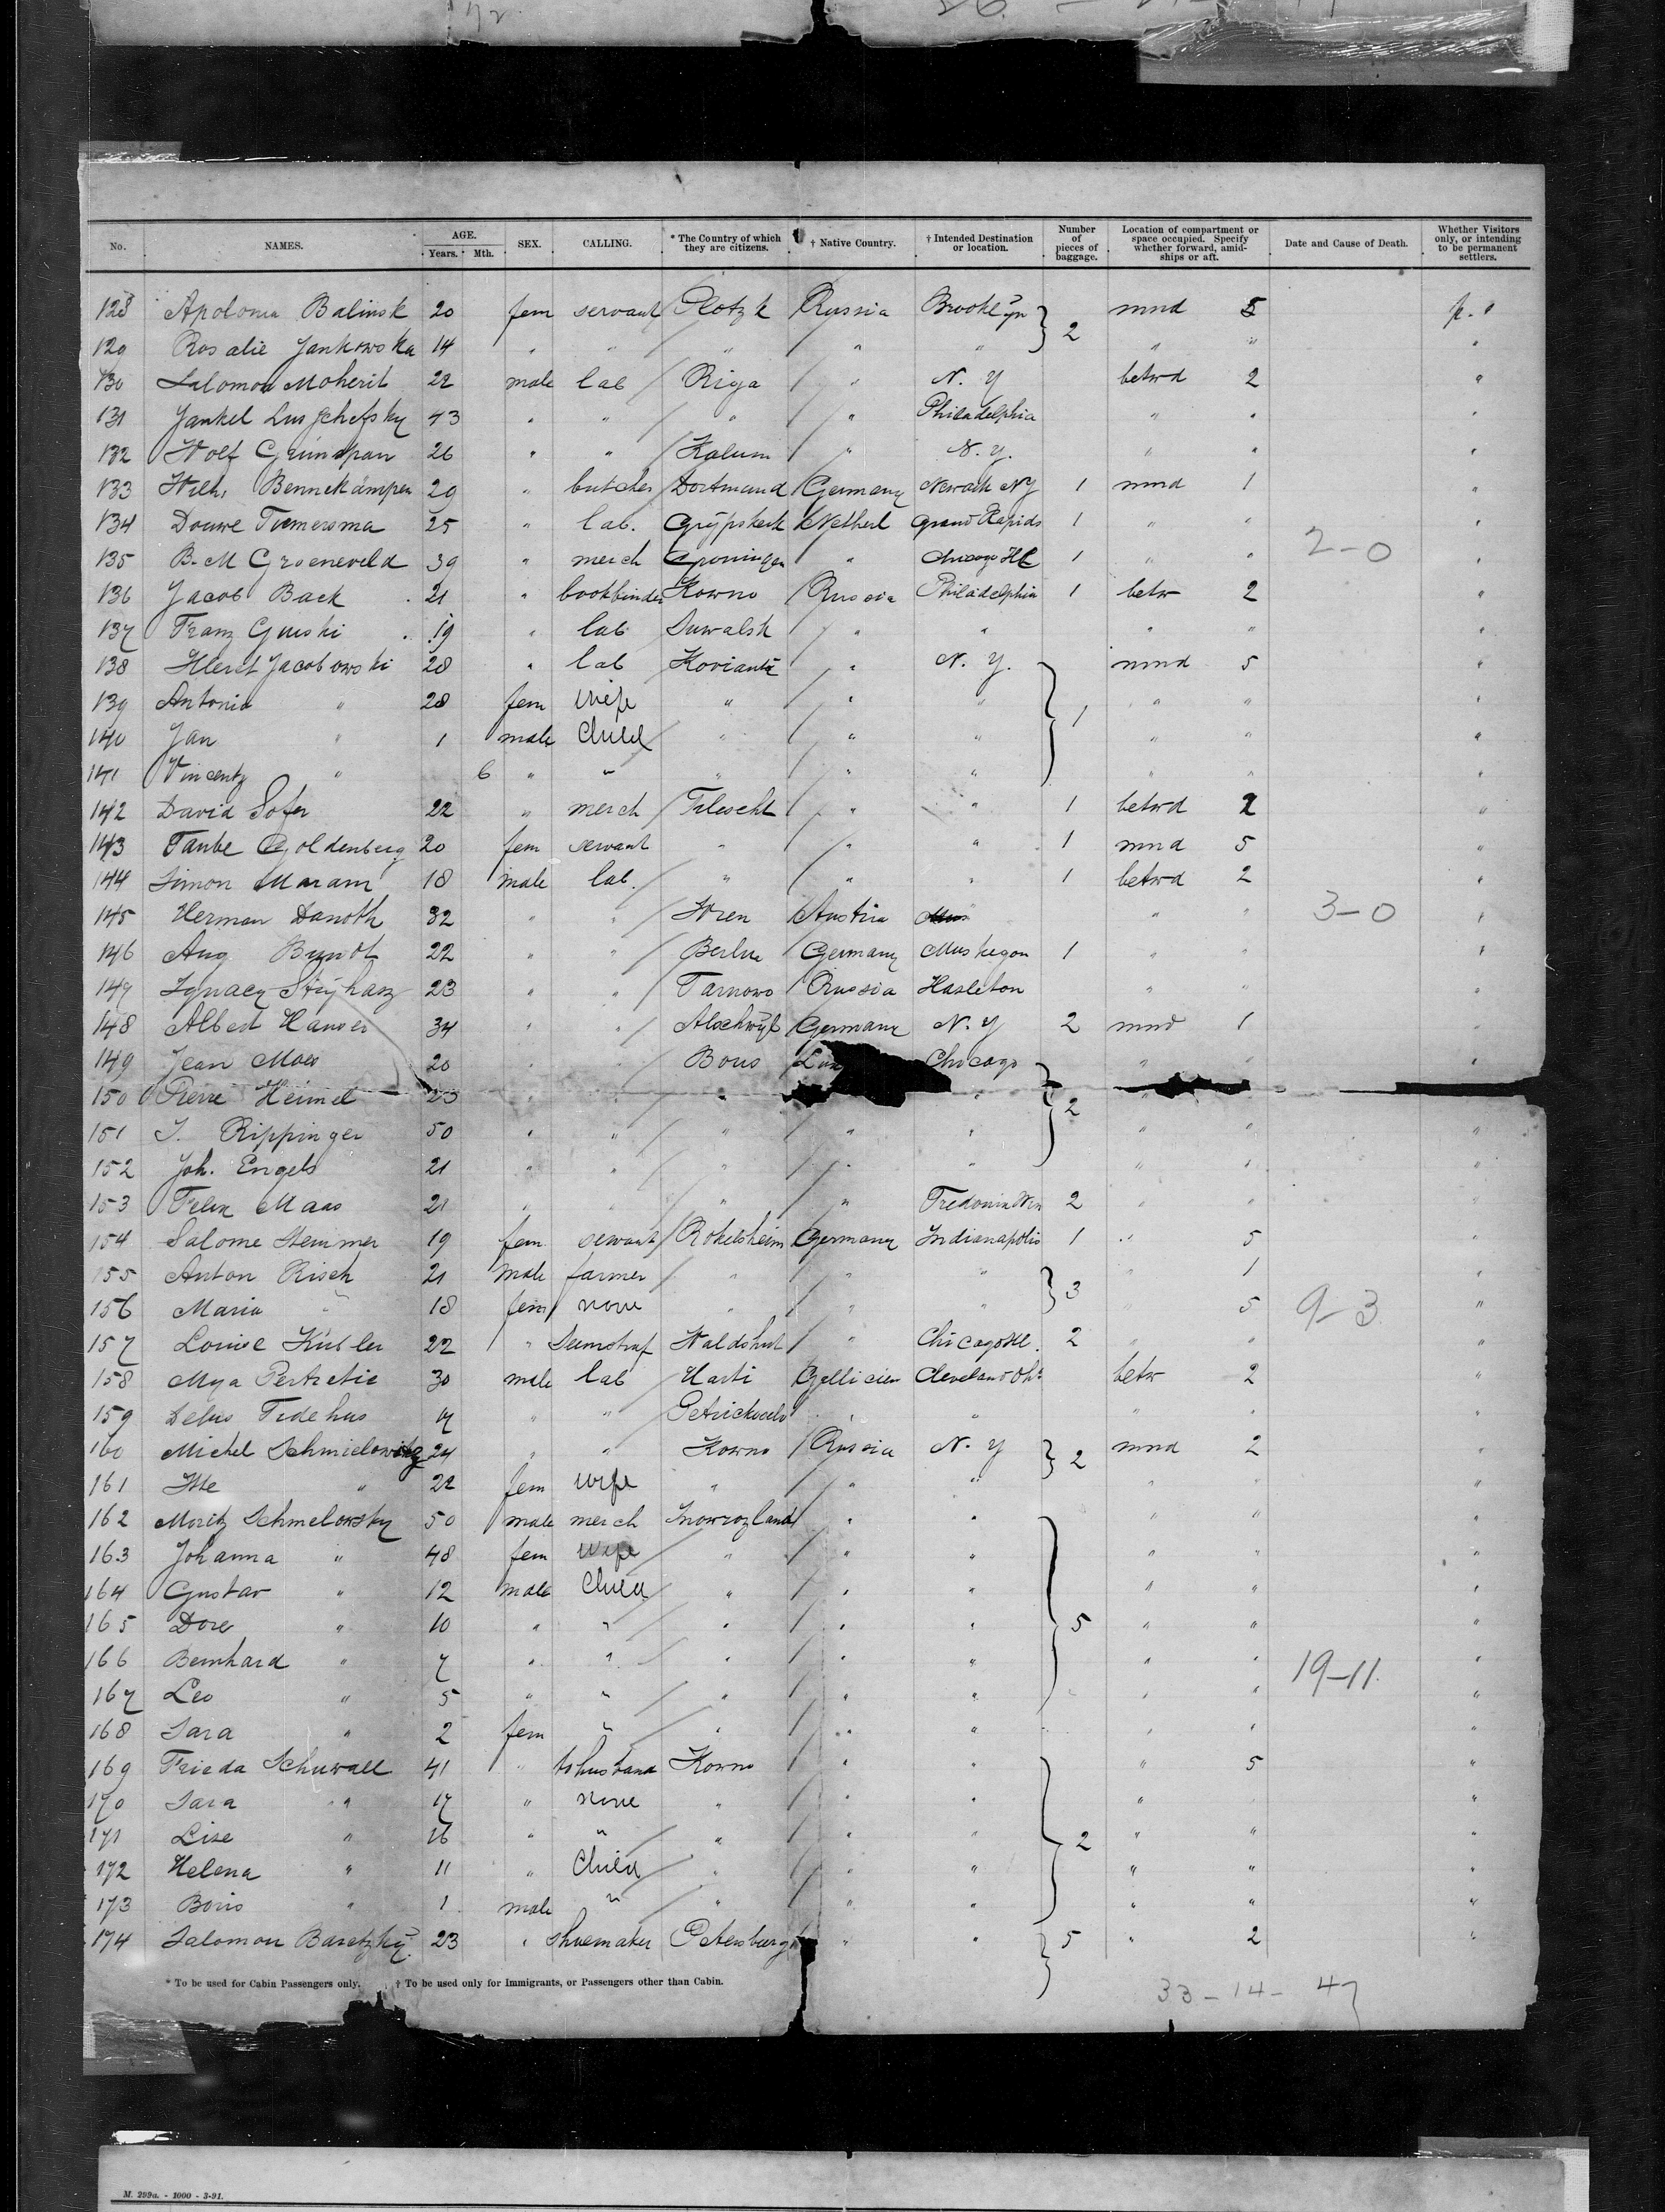 No. NAMES. AGE. Years. Mth. SEX. CALLING. * The Country of which they are citizens. † Native Country. † Intended Destination or location. Number of pieces of baggage. Location of compartment or space occupied. Specify whether forward, amidships or aft. Date and Cause of Death. Whether Visitors only, or intending to be permanent settlers.
128 Apolonia Balinsk 20 fem servant Plotzk Russia Brooklyn 2 mnd 5 p. s
129 Rosalie Jankowska 14 " " " " " " " "
130 Salomon Moherit 22 male lab Riga " N. Y betwd 2 "
131 Jankel 43 " " " " Philadelphia " " "
132 Wolf Grünspan 26 " " Kalum " N. Y. " " "
133 Wilh. Bennekämpen 29 " butcher Dortmund Germany Newark NJ 1 mnd 1 "
134 Douwe Tiemersma 25 " lab. Grÿpskerk Netherl Grand Rapids 1 " " "
135 B. M Groeneveld 39 " merch Groningen " Chicago Ill 1 " " 2-0 "
136 Jacob Back 21 " bookbinder Kowno Russia Philadelphia 1 betw 2 "
137 Franz Guski 19 " lab Suwalsk " " " " "
138 Jacobowski 28 " lab " N. Y. mnd 5 "
139 Antonia " 28 fem wife " " " 1 " " "
140 Jan " 1 male Child " " " " " "
141 Vincentz " 6 " " " " " " " "
142 David Sofer 22 " merch " " 1 betwd 2 "
143 Taube Goldenberg 20 fem servant " " " 1 mnd 5 "
144 Simon Maram 18 male lab. " " " 1 betwd 2 "
145 Herman Danoth 32 " " Wien Austria " " 3-0 "
146 Aug 22 " " Berlin Germany Muskegon 1 " " "
147 Ignacy 23 " " Tarnowo Russia Hasleton " " "
148 Albert Hauser 34 " " Germany N. Y 2 mnd 1 "
149 Jean Moes 20 " " Bous Lux Chicago " " "
150 Pierre Heimel 23 " " " " 2 "
151 J. Rippinger 50 " " " " " " " "
152 Joh. Engels 21 " " " " " " " "
153 Felix Maas 21 " " " " Fredonia Win 2 " " "
154 Salome Stemmer 19 fem servant Germany Indianapolis 1 " 5 "
155 Anton Risch 21 male farmer " " " 3 " 1 "
156 Maria " 18 fem none " " " " 5 9-3 "
157 Louise Kübler 22 " Waldshut " Chicago Ill. 2 " " "
158 30 male lab Gallicien Cleveland Oh. betw 2 "
159 17 " " " " " " "
160 Michel Schmielowitz 24 " " Kowno Russia N. Y 2 mnd 2 "
161 " 22 fem wife " " " " " "
162 Moritz Schmelowsky 50 male merch " " " " "
163 Johanna " 48 fem wife " " " " " "
164 Gustav " 12 male Child " " " " " "
165 Dore " 10 " " " " " 5 " " "
166 Bernhard " 7 " " " " " " " 19-11. "
167 Leo " 5 " " " " " " " "
168 Sara " 2 fem " " " " " " "
169 Frieda Schuwall 41 " to husband Kowno " " " 5 "
170 Sara " 17 " none " " " " "
171 Lise " 16 " " " " " 2 " " "
172 Helena " 11 " Child " " " " " "
173 Boris " 1 male " " " " " " "
174 Salomon Baretzkÿ 23 " shoemaker Petersburg " " 5 " 2 "
* To be used for Cabin Passengers only. † To be used only for Immigrants, or Passengers other than Cabin.
33 - 14 - 47
M. 299a. - 1000 - 3-91.